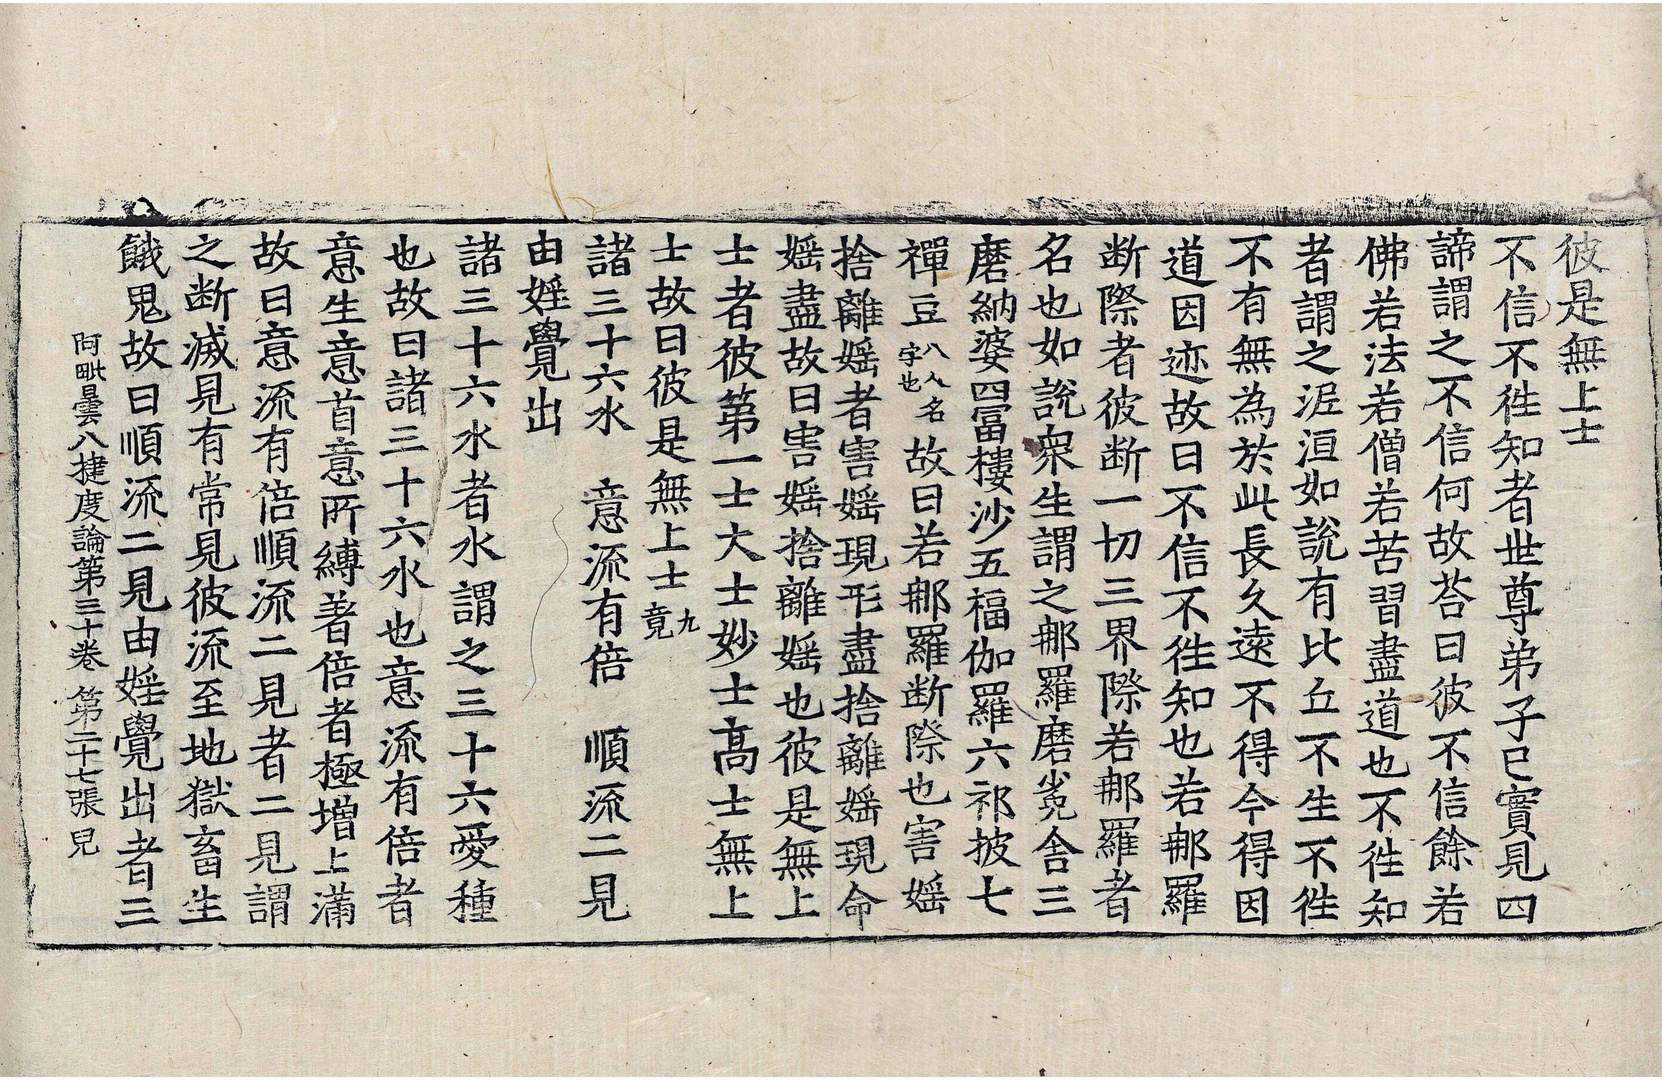 彼是無上士
不信不徃知者世尊弟子已實見四
諦謂之不信何故荅曰彼不信餘若
佛若法若僧若苦習盡道也不徃知
者謂之泥洹如說有比丘不生不徃
不有無為於此長久遠不得今得因
道因迹故曰不信不徃知也若䣯羅
断際者彼断一切三界際若䣯羅者
名也如說衆生謂之䣯羅磨㝹舍三
磨納婆四富樓沙五福伽羅六祁披七
禪豆八人名字也故曰若䣯羅断際也害婬
捨離婬者害婬現形盡捨離婬現命
婬盡故曰害婬捨離婬也彼是無上
士者彼第一士大士妙士高士無上
士故曰彼是無上士九竟
諸三十六水　意流有倍　順流二見
由婬覺出
諸三十六水者水謂之三十六愛種
也故曰諸三十六水也意流有倍者
意生意首意所縛著倍者極增上滿
故曰意流有倍順流二見者二見謂
之断滅見有常見彼流至地獄畜生
餓鬼故曰順流二見由婬覺出者三
阿毗曇八揵度論第三十卷　第二十七張　皃